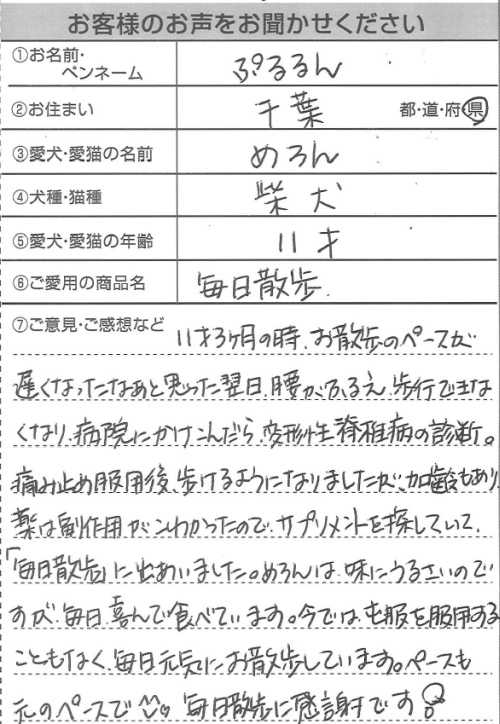 お客様のお声をお聞かせください
①お名前・ペンネーム ぷるるん
②お住まい 千葉 都・道・府・県
③愛犬・愛猫の名前 めろん
④犬種・猫種 柴犬
⑤愛犬・愛猫の年齢 11才
⑥ご愛用の商品名 毎日散歩.
⑦ご意見・ご感想など 11才3ヶ月の時、お散歩のペースが
遅くなったなあと思った翌日、腰がふるえ、歩行できな
くなり、病院にかけこんだら、変形性脊椎病の診断。
痛み止め服用後、歩けるようになりましたが、加齢もあり
薬は副作用がこわかったので、サプリメントを探していて、
「毎日散歩」に出あいました。めろんは、味にうるさいので
すが、毎日、喜んで食べています。今では、屯服を服用する
こともなく、毎日元気にお散歩しています。ペースも
元のペースで 毎日散歩に感謝です